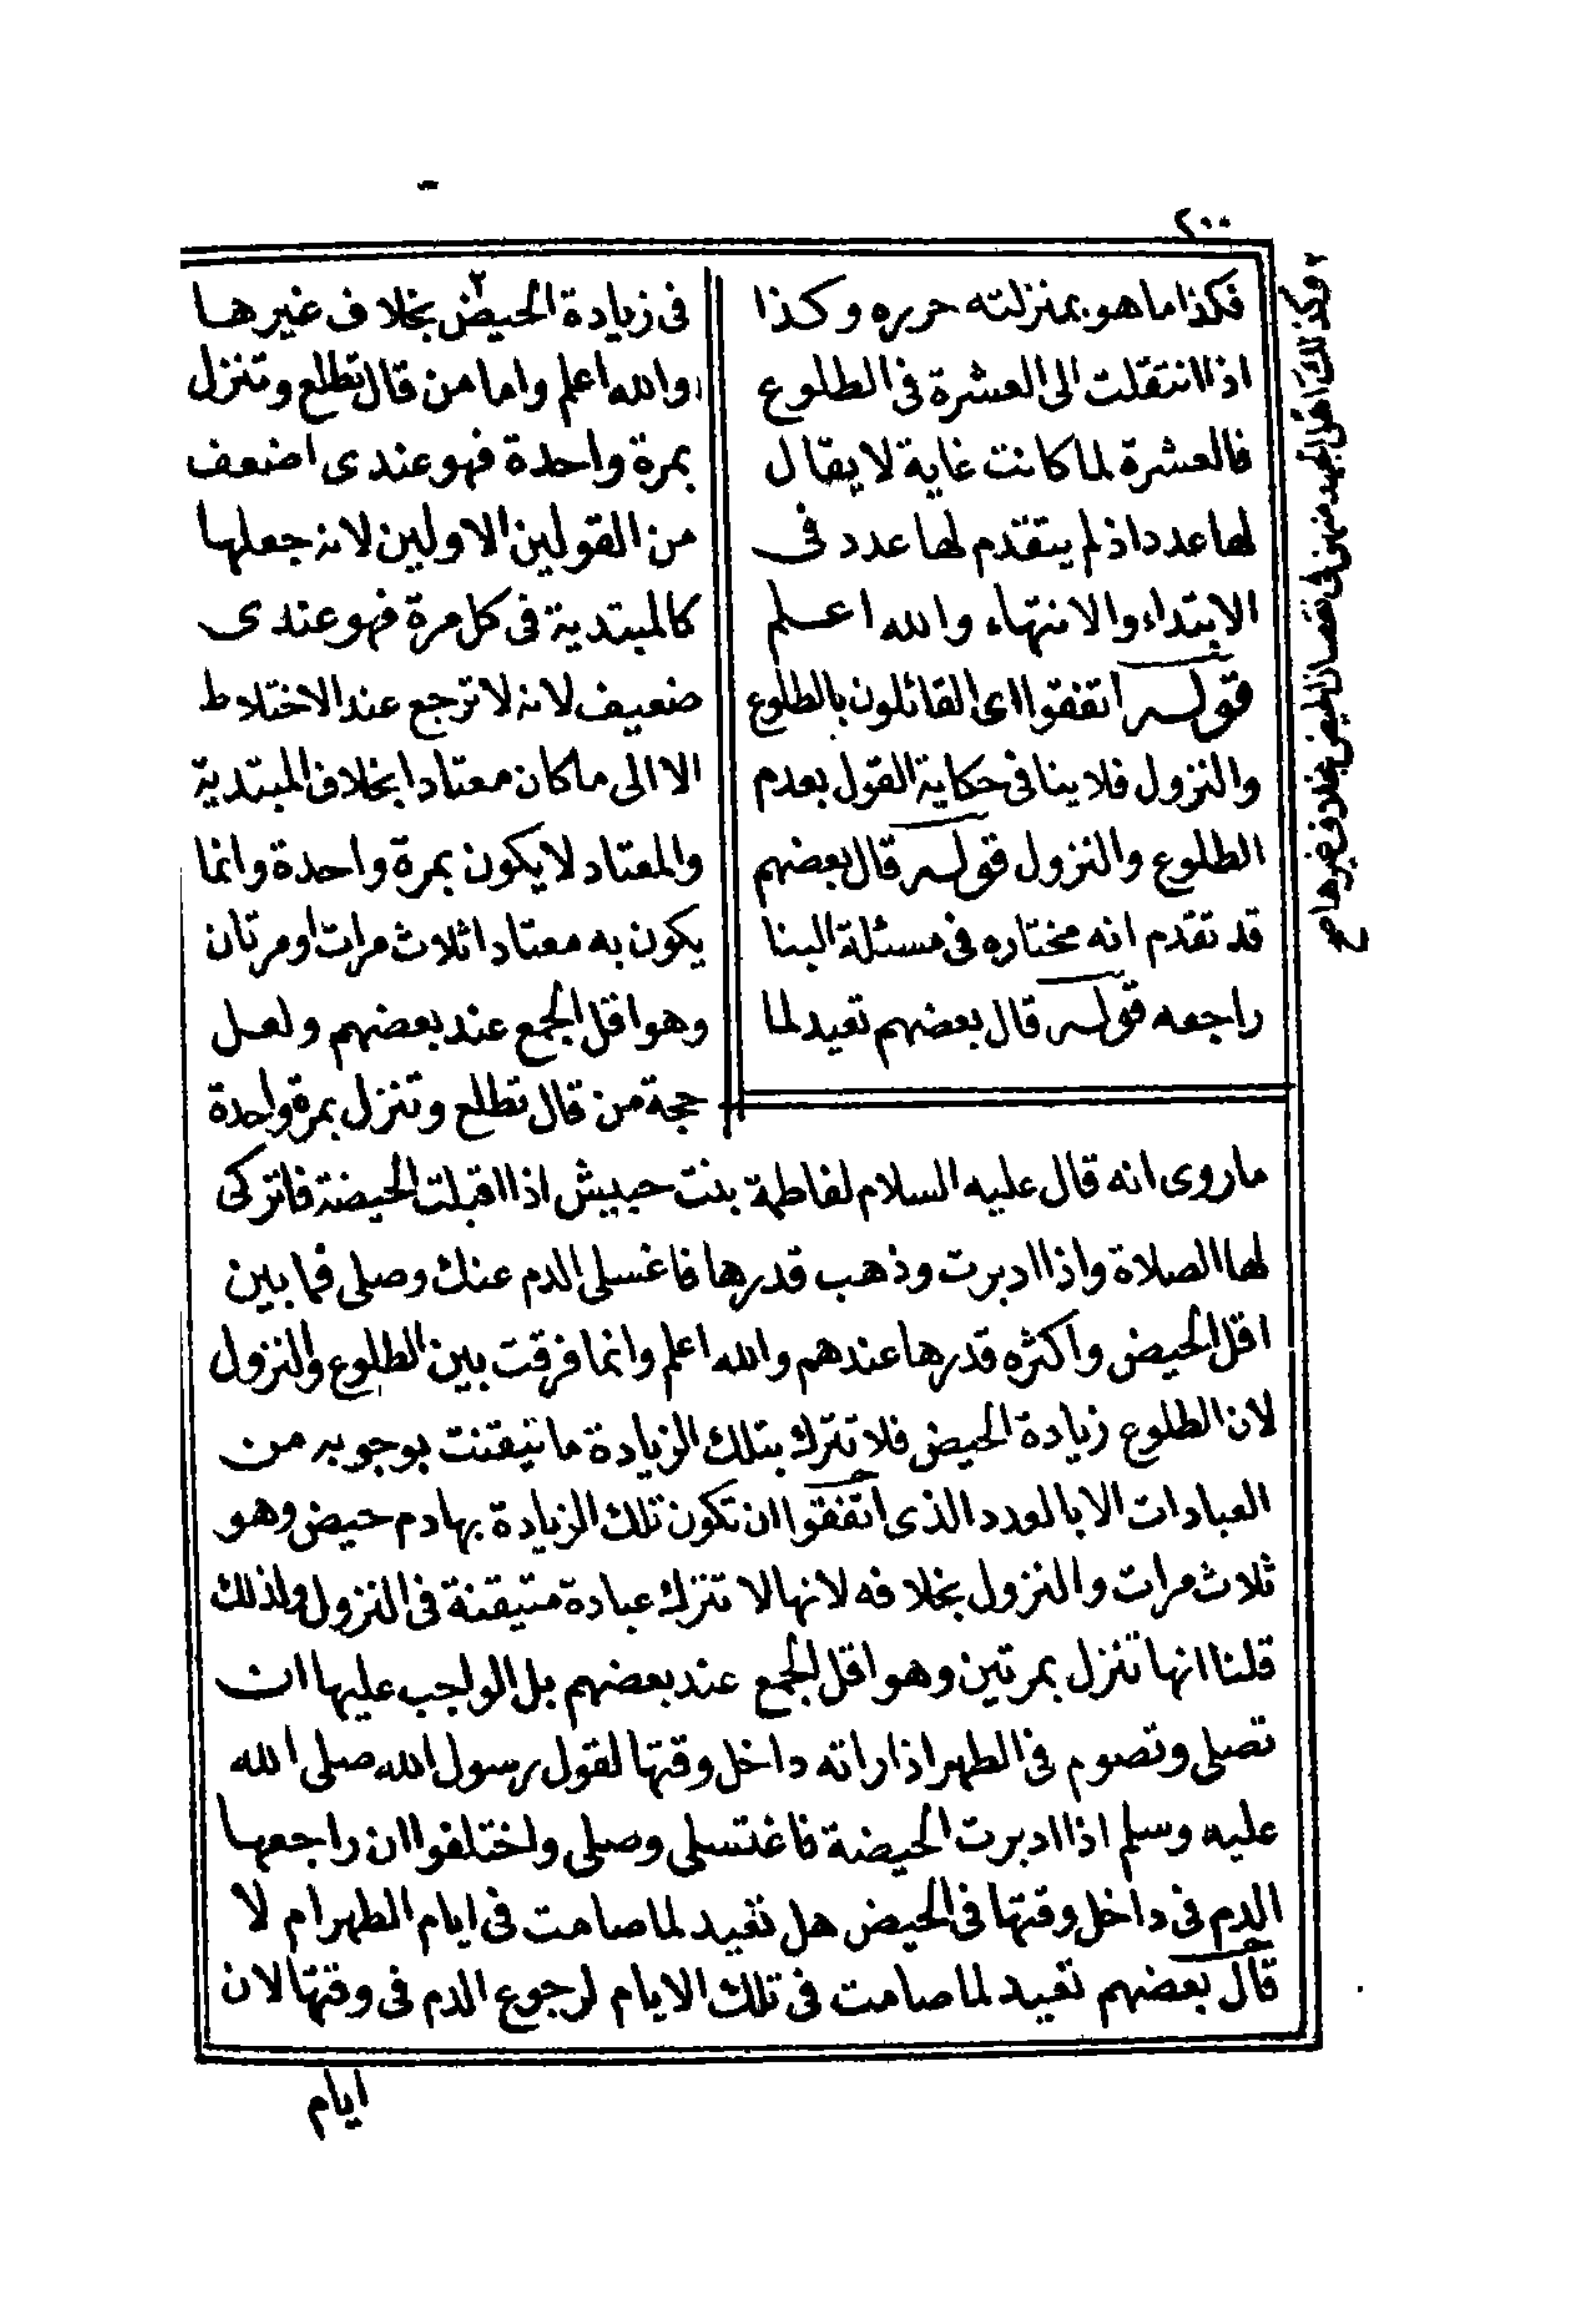 ٢٠٠
فكذا ما هو بمنزلته حرره وكذا
اذا انتقلت الى العشرة فى الطلوع
فالعشرة لما كانت غاية لا يقال
لها عدد اذ لم يتقدم لها عدد فى
الابتداء والانتهاء والله اعلم
قوله اتفقوا اى القائلون بالطلوع
والنزول فلا ينافى حكاية القول بعدم
الطلوع والنزول قوله قال بعضهم
قد تقدم انه مختاره فى مسئلة البنا
راجعه قوله قال بعضهم تعيد لما
فى زيادة الحيض٢ بخلاف غيرها
والله اعلم واما من قال تطلع وتنزل
بمرة واحدة فهو عندى اضعف
من القولين الاولين لانه جعلها
كالمبتدية فى كل مرة فهو عندى
ضعيف لانه لا ترجع عند الاختلاط
الا الى ما كان معتادا بخلاف المبتدية
والمعتاد لا يكون بمرة واحدة وانما
يكون به معتادا ثلاث مرات او مرتان
وهو اقل الجمع عند بعضهم ولعل
حجة من قال تطلع وتنزل بمرة واحدة
ما روى انه قال عليه السلام لفاطمة بنت حبيش اذا اقبلت الحيضة فاتركى
لها الصلاة واذا ادبرت وذهب قدرها فاغسلى الدم عنك وصلى فما بين
اقل الحيض واكثره قدرها عندهم والله اعلم وانما فرقت بين الطلوع والنزول
لان الطلوع زيادة الحيض فلا تترك بتلك الزيادة ما تيقنت بوجوبه من
العبادات الا بالعدد الذى اتفقوا ان تكون تلك الزيادة بها دم حيض وهو
ثلاث مرات والنزول بخلافه لانها لا تترك عبادة متيقنة فى النزول ولذلك
قلنا انها تنزل بمرتين وهو اقل الجمع عند بعضهم بل الواجب عليها ان
تصلى وتصوم فى الطهر اذا راته داخل وقتها لقول رسول الله صلى الله
عليه وسلم اذا ادبرت الحيضة فاغتسلى وصلى واختلفوا ان راجعها
الدم فى داخل وقتها فى الحيض هل تعيد لما صامت فى ايام الطهر ام لا
قال بعضهم تعيد لما صامت فى تلك الايام لرجوع الدم فى وقتها لان
ايام
٢ وكذلك اهل الجهد منهن فى نقصان الحيض بخلاف غيرها صح